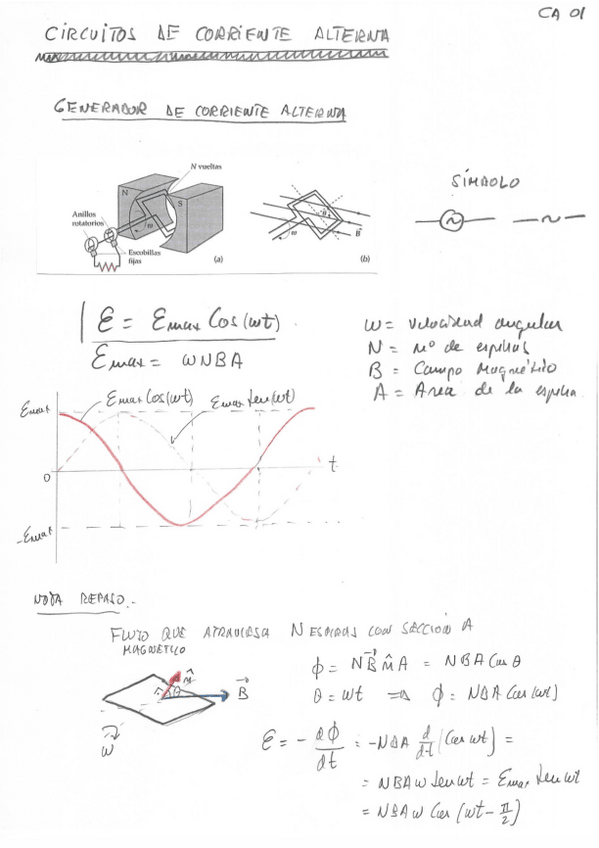 CA 01
CIRCUITOS DE CORRIENTE ALTERNA
GENERADOR DE CORRIENTE ALTERNA
N vueltas
N
S
Anillos
rotatorios
ω
Escobillas
fijas
(a)
n̂
ω
B⃗
(b)
SÍMBOLO
ℰ = ℰmax Cos(ωt)
ℰmax = ωNBA
ω = velocidad angular
N = nº de espiras
B = Campo Magnético
A = Area de la espira
ℰmax
ℰmax Cos(ωt)
ℰmax Sen(ωt)
0
t
-ℰmax
NOTA REPASO.-
FLUJO QUE ATRAVIESA N ESPIRAS CON SECCIÓN A
MAGNÉTICO
n̂
θ
B⃗
ω
ϕ = N B⃗ n̂ A = NBA Cos θ
θ = ωt ⟹ ϕ = NBA Cos(ωt)
ℰ = - dϕ/dt = -NBA d/dt (Cos ωt) =
= NBAω Sen ωt = ℰmax Sen ωt
= NBAω Cos (ωt - π/2)